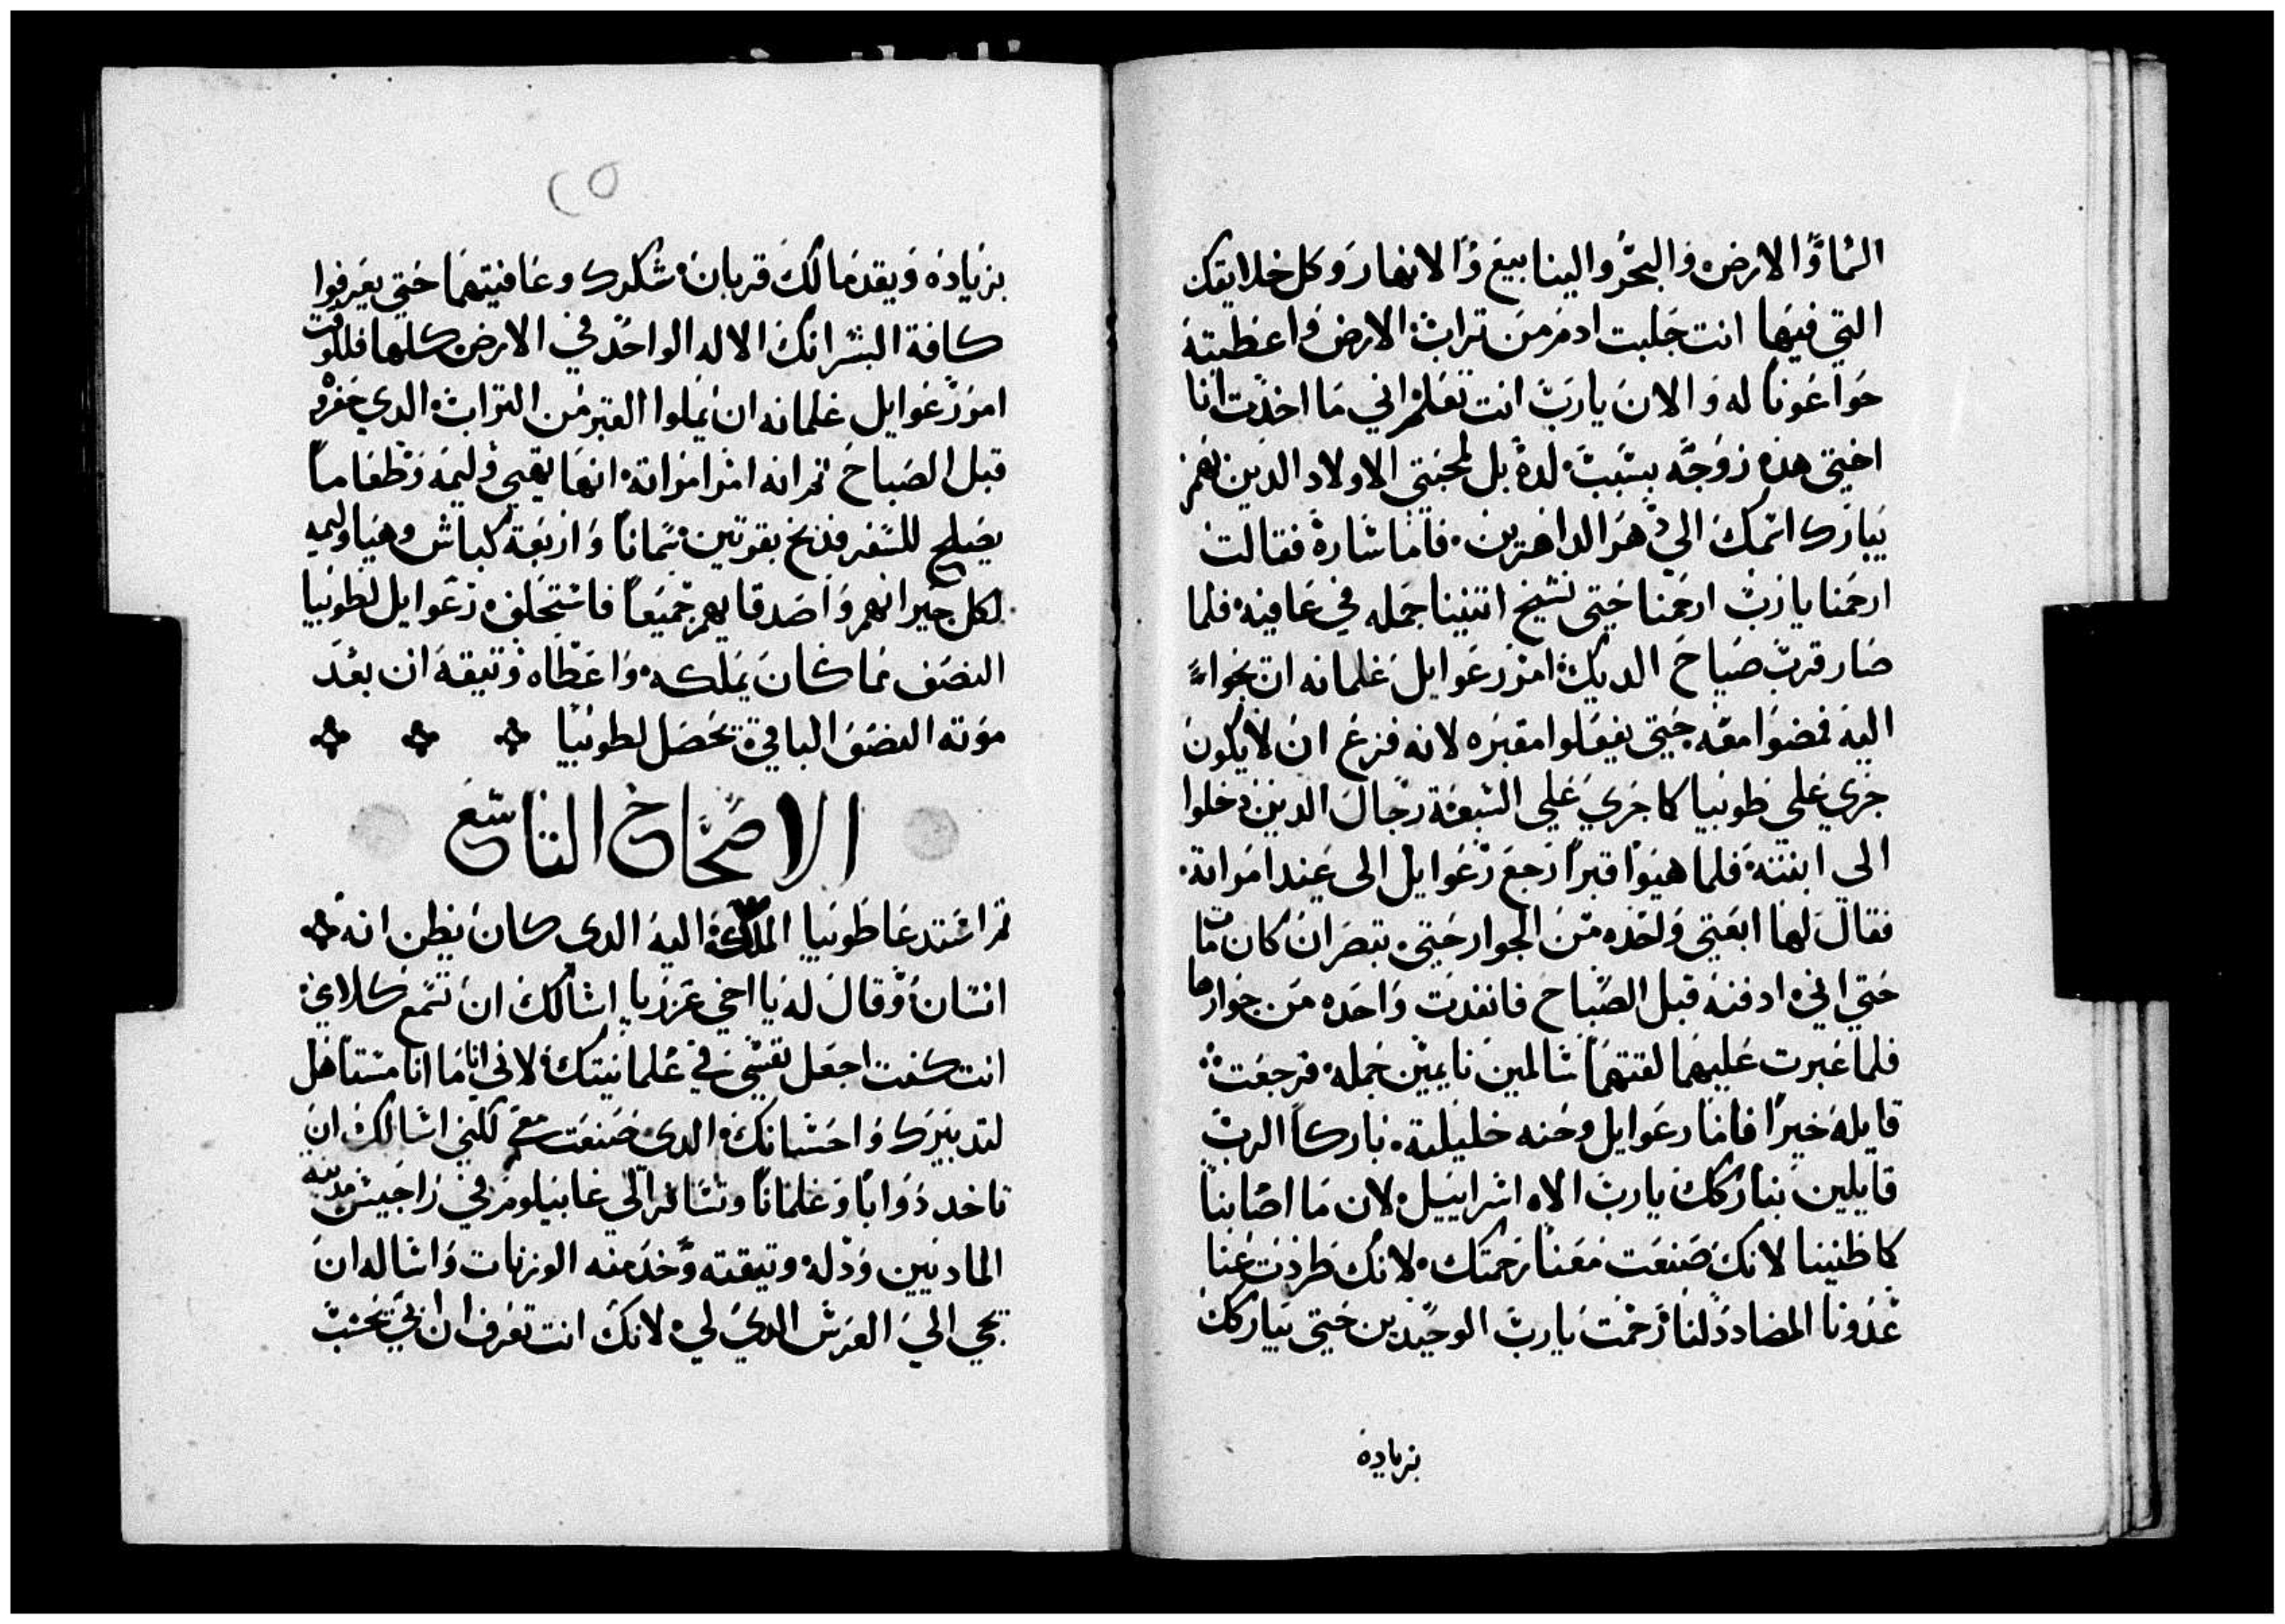 السما والارض والبحر والينابيع والانهار وكل خلايقك
التي فيها انت جبلت ادم من تراب الارض واعطيته
حوا عونا له والان يارب انت تعلم اني ما اخدت انا
اختي هده زوجه بسبب لده بل لمحبتي الاولاد الدين بهم
يبارك اسمك الي دهر الداهرين فاما ساره فقالت
ارحمنا يا رب ارحمنا حتي نشيخ اتنينا جمله في عافيه فلما
صار قرب صياح الديك امر رعوايل غلمانه ان يجوا
اليه فمضوا معه حتي يفعلوا مقبره لانه فزع ان لا يكون
جري علي طوبيا كما جري علي السبعة رجال الدين دخلوا
الي ابنته فلما هيوا قبرا رجع رعوايل الى عند امراته
فقال لها ابعتي واحده من الجوار حتي تبصر ان كان مات
حتي اني ادفنه قبل الصباح فانفدت واحده من جوارها
فلما عبرت عليهما لقتهما سالمين نايمين جمله فرجعت
قايله خيرا فاما رعوايل وحنه خليلته باركا الرب
قايلين نباركك يارب الاه اسراييل لان ما اصابنا
كما ظنينا لانك صنعت معنا رحمتك لانك طردت عنا
عدونا المضادد لنا رحمت يارب الوحيدين حتي يباركك
بزياده
٢٥
بزياده ويقدما لك قربان شكرك وعافيتهما حتي يعرفوا
كافة البشر انك الاله الواحد في الارض كلها فللوقت
امر رعوايل غلمانه ان يملوا القبر من التراب الدي حفره
قبل الصباح تم انه امر امراته انها تهيي وليمه وطعاما
يصلح للسفر فدبح بقرتين سمانا واربعة كباش وهيا وليمه
لكل جيرانهم واصدقايهم جميعا فاستحلف رعوايل لطوبيا
النصف مما كان يملكه واعطاه وتيقه ان بعد
موته النصف الباقي يحصل لطوبيا
الاصحاح التاسع
تم استدعا طوبيا الملاك اليه الدي كان يظن انه
انسان وقال له يا اخي عزريا اسالك ان تسمع كلامي
انت كنت اجعل نفسي في غلمانيتك لاني انا ما انا مستاهل
لتدبيرك واحسانك الدي صنعت معي لكني اسالك ان
تاخد دوابا وغلمانا وتسافر الي غابيلوم في راجيس مدينه
الماديين ورد له وتيقته وخد منه الوزنات واساله ان
يجي الي العرس الدي لي لانك انت تعرف ان ابي يحسب